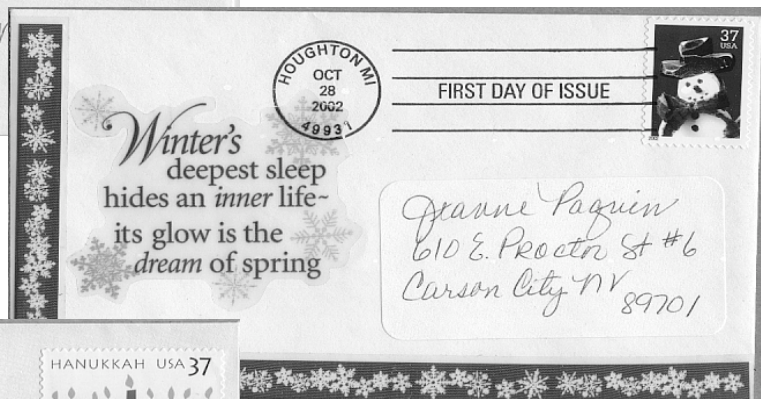 HOUGHTON MI
OCT
28
2002
49931
FIRST DAY OF ISSUE
37
USA
Winter's
deepest sleep
hides an inner life~
its glow is the
dream of spring
Jeanne Paquin
610 E. Proctor St #6
Carson City NV
89701
HANUKKAH USA 37